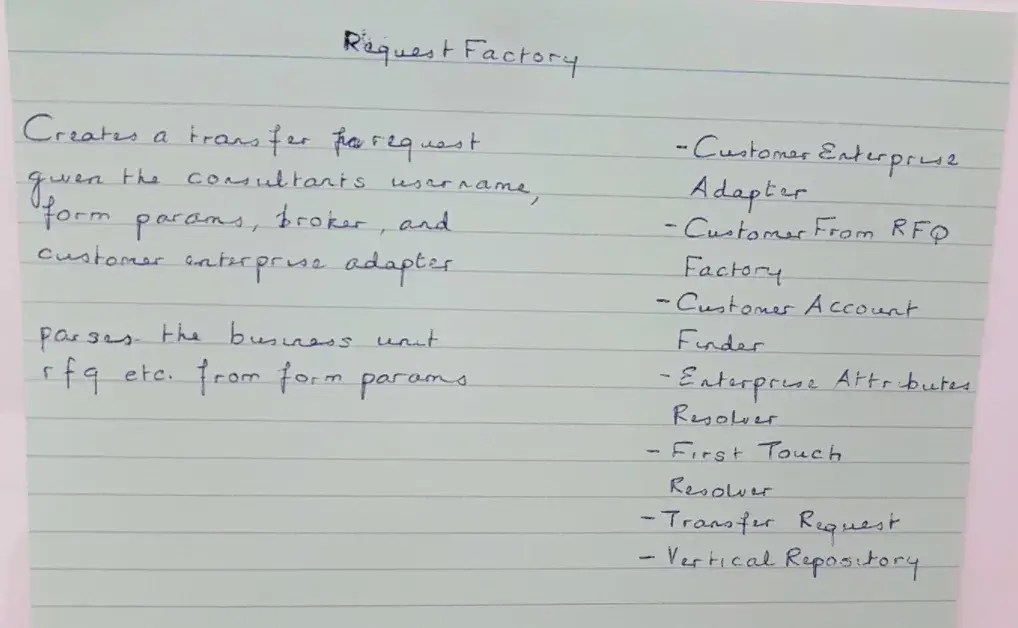 Request Factory
Creates a transfer request
given the consultants username,
form params, broker, and
customer enterprise adapter
parses the business unit
rfq etc. from form params
- Customer Enterprise
Adapter
- Customer From RFQ
Factory
- Customer Account
Finder
- Enterprise Attributes
Resolver
- First Touch
Resolver
- Transfer Request
- Vertical Repository